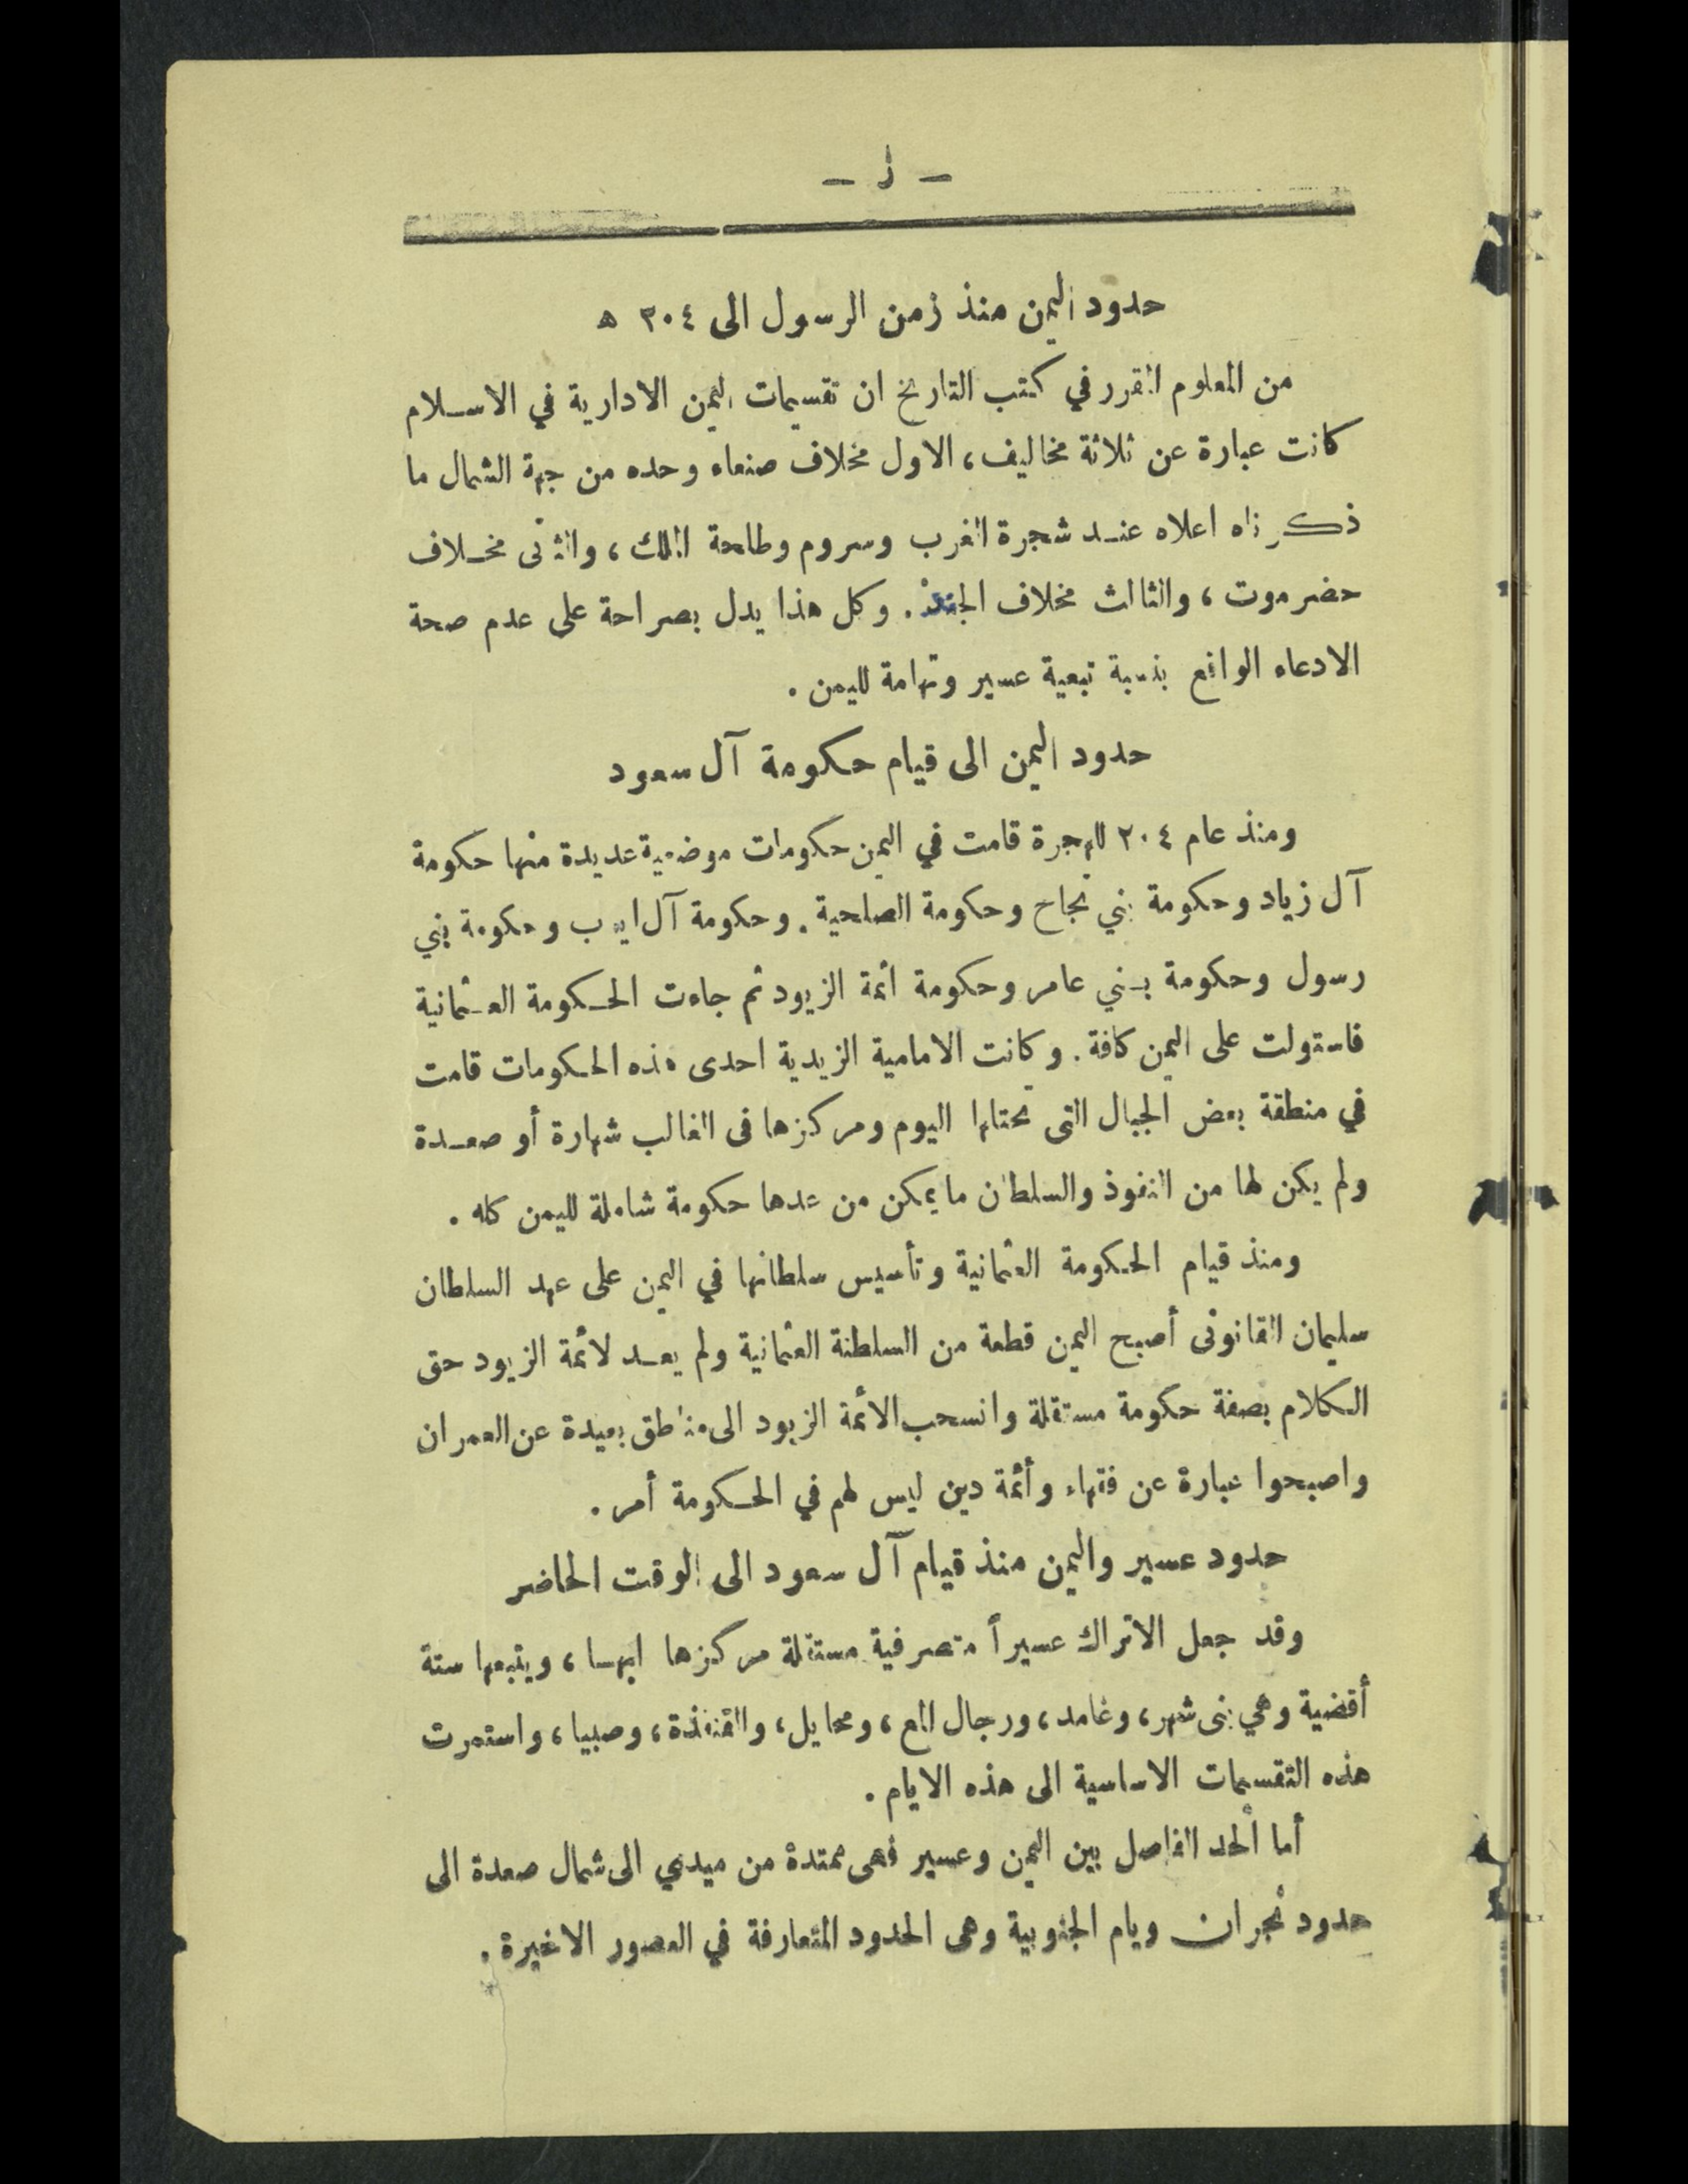 - ز -
حدود اليمن منذ زمن الرسول الى ٢٠٤ ه
من المعلوم المقرر في كتب التاريخ ان تقسيمات اليمن الادارية في الاسلام
كانت عبارة عن ثلاثة مخاليف، الاول مخلاف صنعاء وحده من جهة الشمال ما
ذكرناه اعلاه عند شجرة الغرب وسروم وطلحة الملك، والثاني مخلاف
حضرموت، والثالث مخلاف الجند. وكل هذا يدل بصراحة على عدم صحة
الادعاء الواقع بنسبة تبعية عسير وتهامة لليمن.
حدود اليمن الى قيام حكومة آل سعود
ومنذ عام ٢٠٤ للهجرة قامت في اليمن حكومات موضعية عديدة منها حكومة
آل زياد وحكومة بني نجاح وحكومة الصلحية. وحكومة آل ايوب وحكومة بني
رسول وحكومة بني عامر وحكومة ائمة الزيود ثم جاءت الحكومة العثمانية
فاستولت على اليمن كافة. وكانت الامامية الزيدية احدى هذه الحكومات قامت
في منطقة بعض الجبال التى تحتلها اليوم ومركزها فى الغالب شهارة أو صعدة
ولم يكن لها من النفوذ والسلطان ما يمكن من عدها حكومة شاملة لليمن كله.
ومنذ قيام الحكومة العثمانية وتأسيس سلطانها في اليمن على عهد السلطان
سليمان القانونى أصبح اليمن قطعة من السلطنة العثمانية ولم يعد لائمة الزيود حق
الكلام بصفة حكومة مستقلة وانسحب الأئمة الزيود الى مناطق بعيدة عن العمران
واصبحوا عبارة عن فقهاء وأئمة دين ليس لهم في الحكومة أمر.
حدود عسير واليمن منذ قيام آل سعود الى الوقت الحاضر
وقد جعل الاتراك عسيراً متصرفية مستقلة مركزها ابها، ويتبعها ستة
أقضية وهي بنى شهر، وغامد، ورجال المع، ومحايل، والقنفذة، وصبيا، واستمرت
هذه التقسيمات الاساسية الى هذه الايام.
أما الحد الفاصل بين اليمن وعسير فهى ممتدة من ميدي الى شمال صعدة الى
حدود نجران ويام الجنوبية وهى الحدود المتعارفة في العصور الاخيرة.